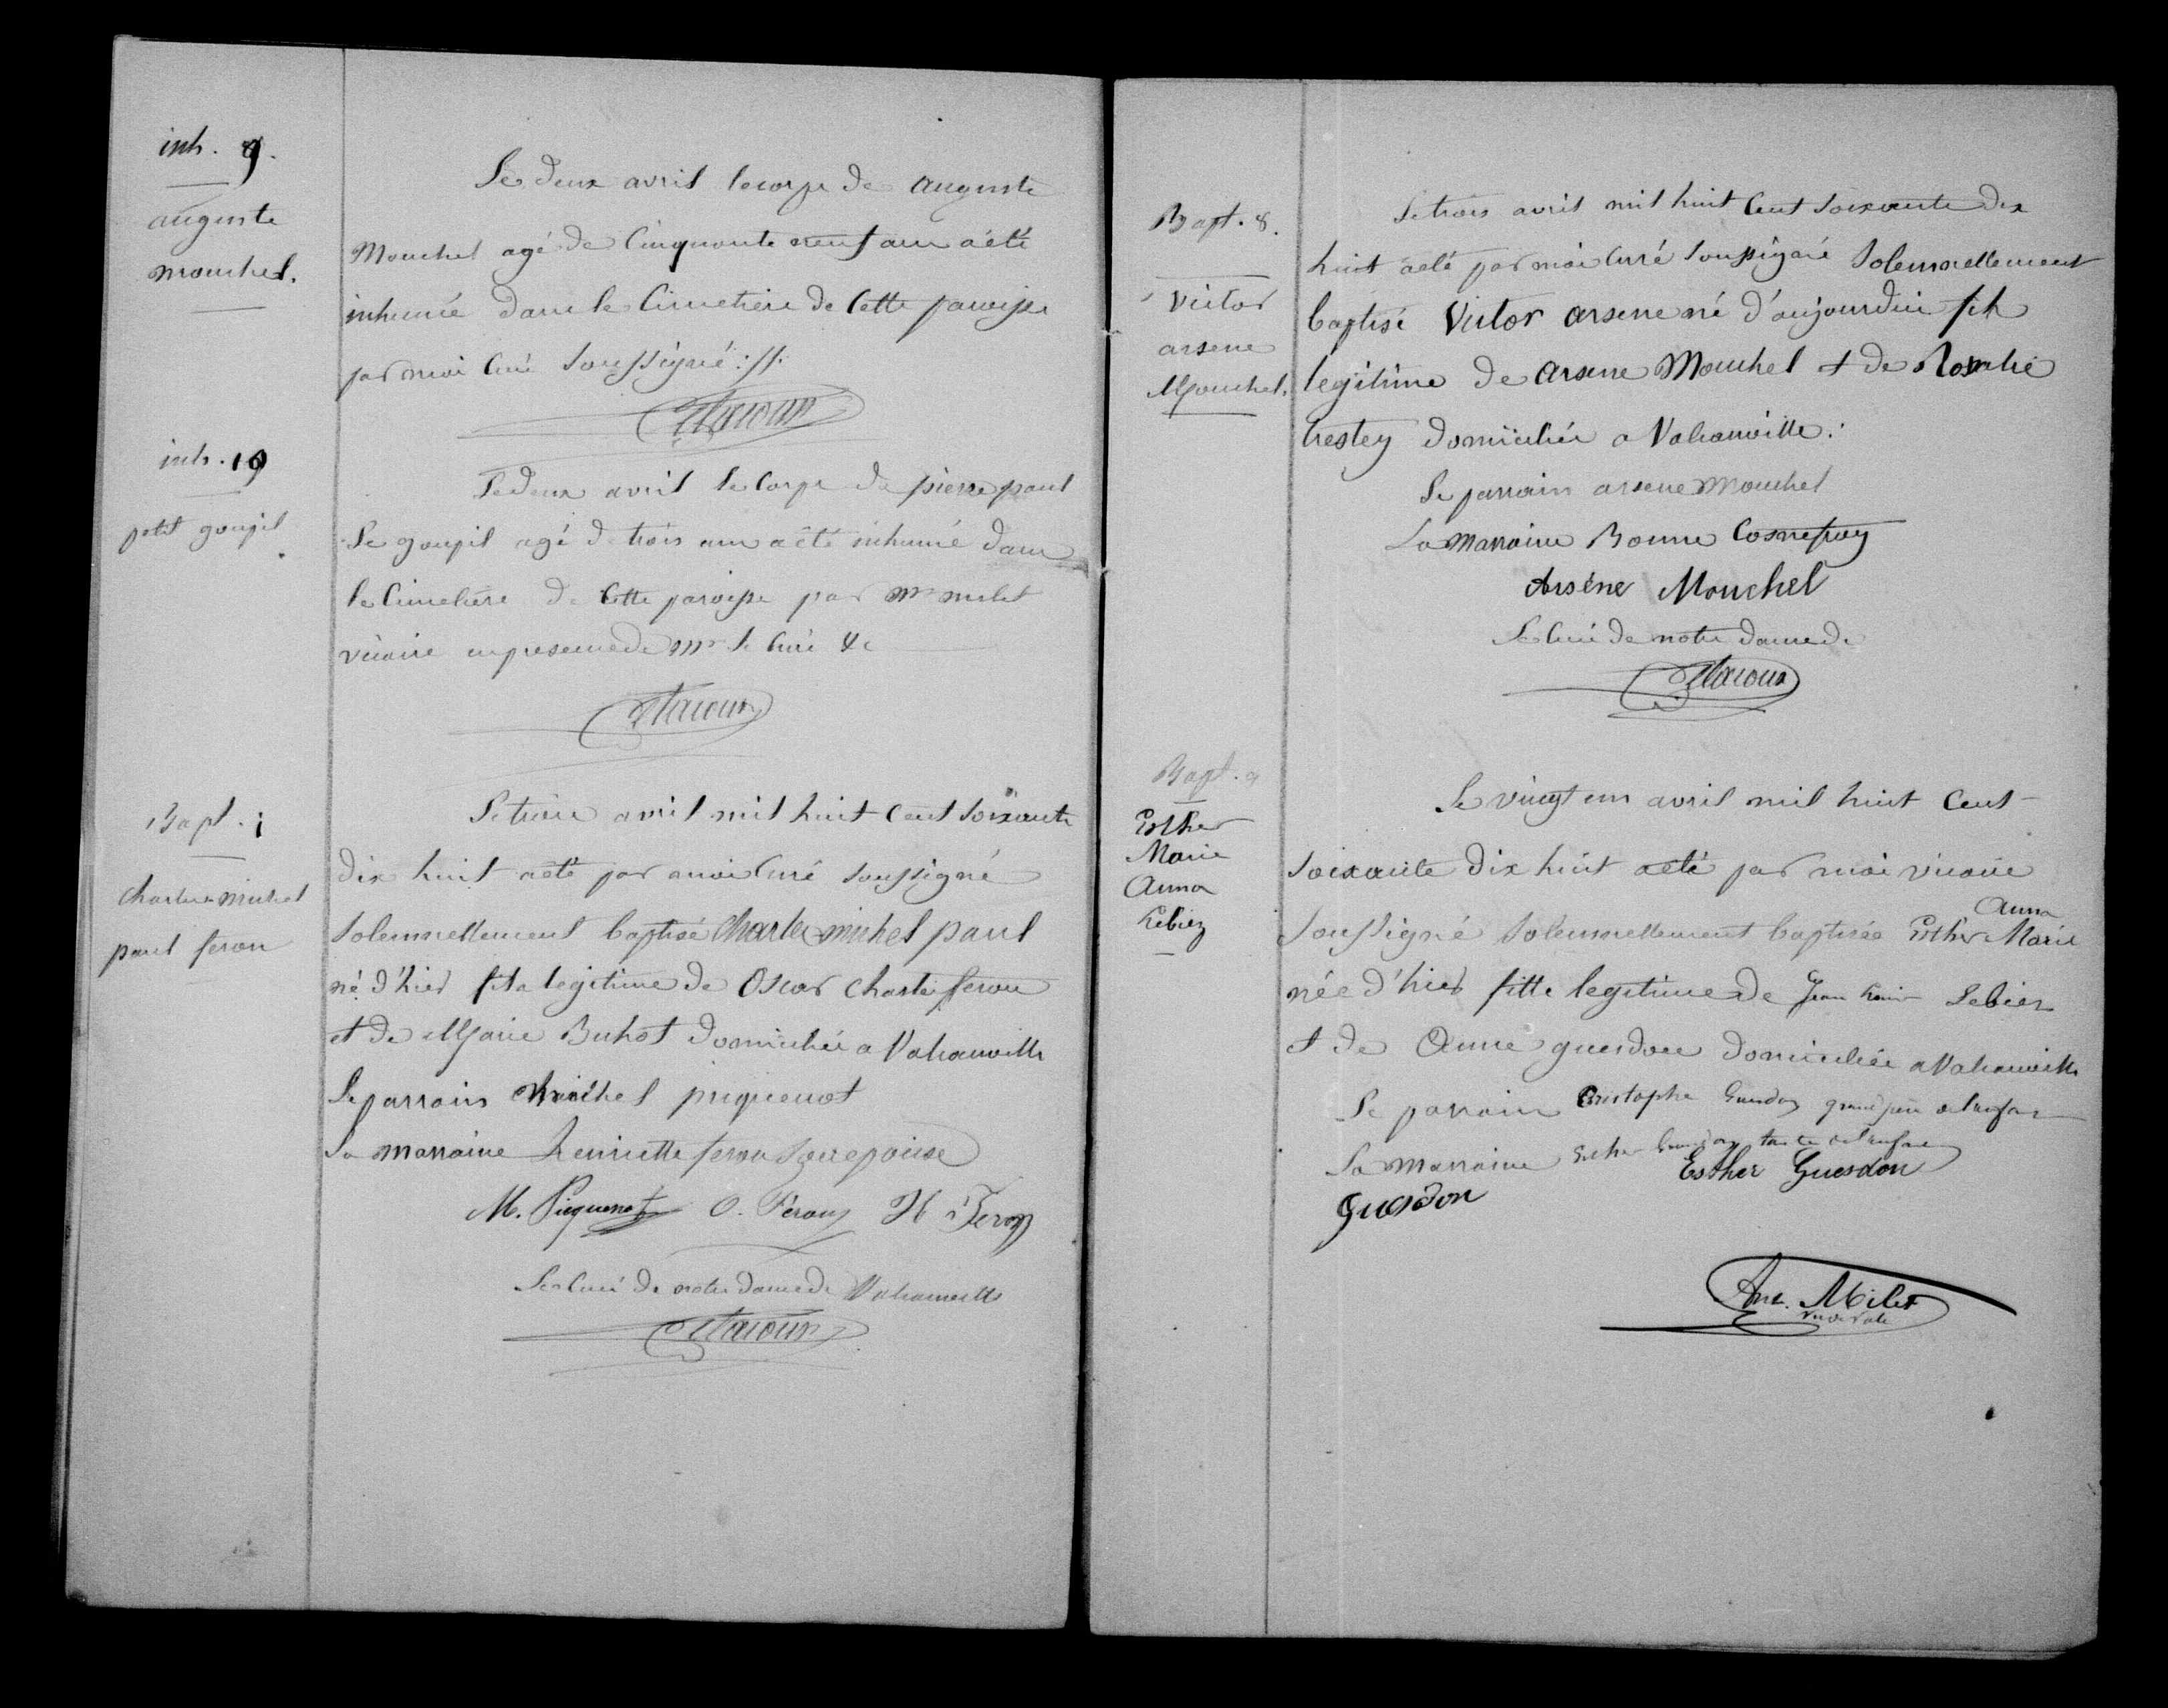 inh. 9.
auguste
mouchel.
Le deux avril le corps de auguste
Mouchel agé de Cinquante neuf ans a été
inhumé dans le Cimetière de Cette paroisse
par moi Curé Soussigné ://.
inh. 10
petit goupil
Le deux avril le Corps de pierre paul
le goupil agé de trois ans a été inhumé dans
le Cimetière de Cette paroisse par mr milet
vicaire en presence de mr le Curé &c
Bapt.
Charles michel
paul feron
Le trois avril mil huit Cent Soixante
dix huit a été par moi Curé Soussigné
Solennellement baptisé Charles michel paul
né d'hier fils legitime de Oscar Charles feron
et de Marie Buhot domiciliés a Valcanville
Le parrain Michel piquenot
La marraine henriette feron
M. Piquenot O. Féron H Feron
Le Curé de notre dame de Valcanville
Bapt. 8.
Victor
arsene
Mouchel.
Le trois avril mil huit Cent Soixante dix
huit a été par moi Curé Soussigné Solennellement
baptisé Victor arsene né d'aujourdui fils
legitime de arsene Mouchel et de Rosalie
trestey domiciliés a Valcanville.
Le parrain arsene Mouchel
La marraine Bonne Cosnefroy
Arsène Mouchel
Le Curé de notre dame de
Bapt. 9
Esther
Marie
Anna
Lebiez
Le vingt un avril mil huit Cent
Soixante dix huit a été par moi vicaire
Anna
Soussigné Solennellement baptisée Esther Marie
née d'hier fille legitime de Jean Louis Lebiez
et de Anne guesdon domiciliés a Valcanville
Le parrain Cristophe Guesdon grand père de l'enfant
La marraine Esther Guesdon tante de l'enfant
Esther Guesdon
Guesdon
Milet